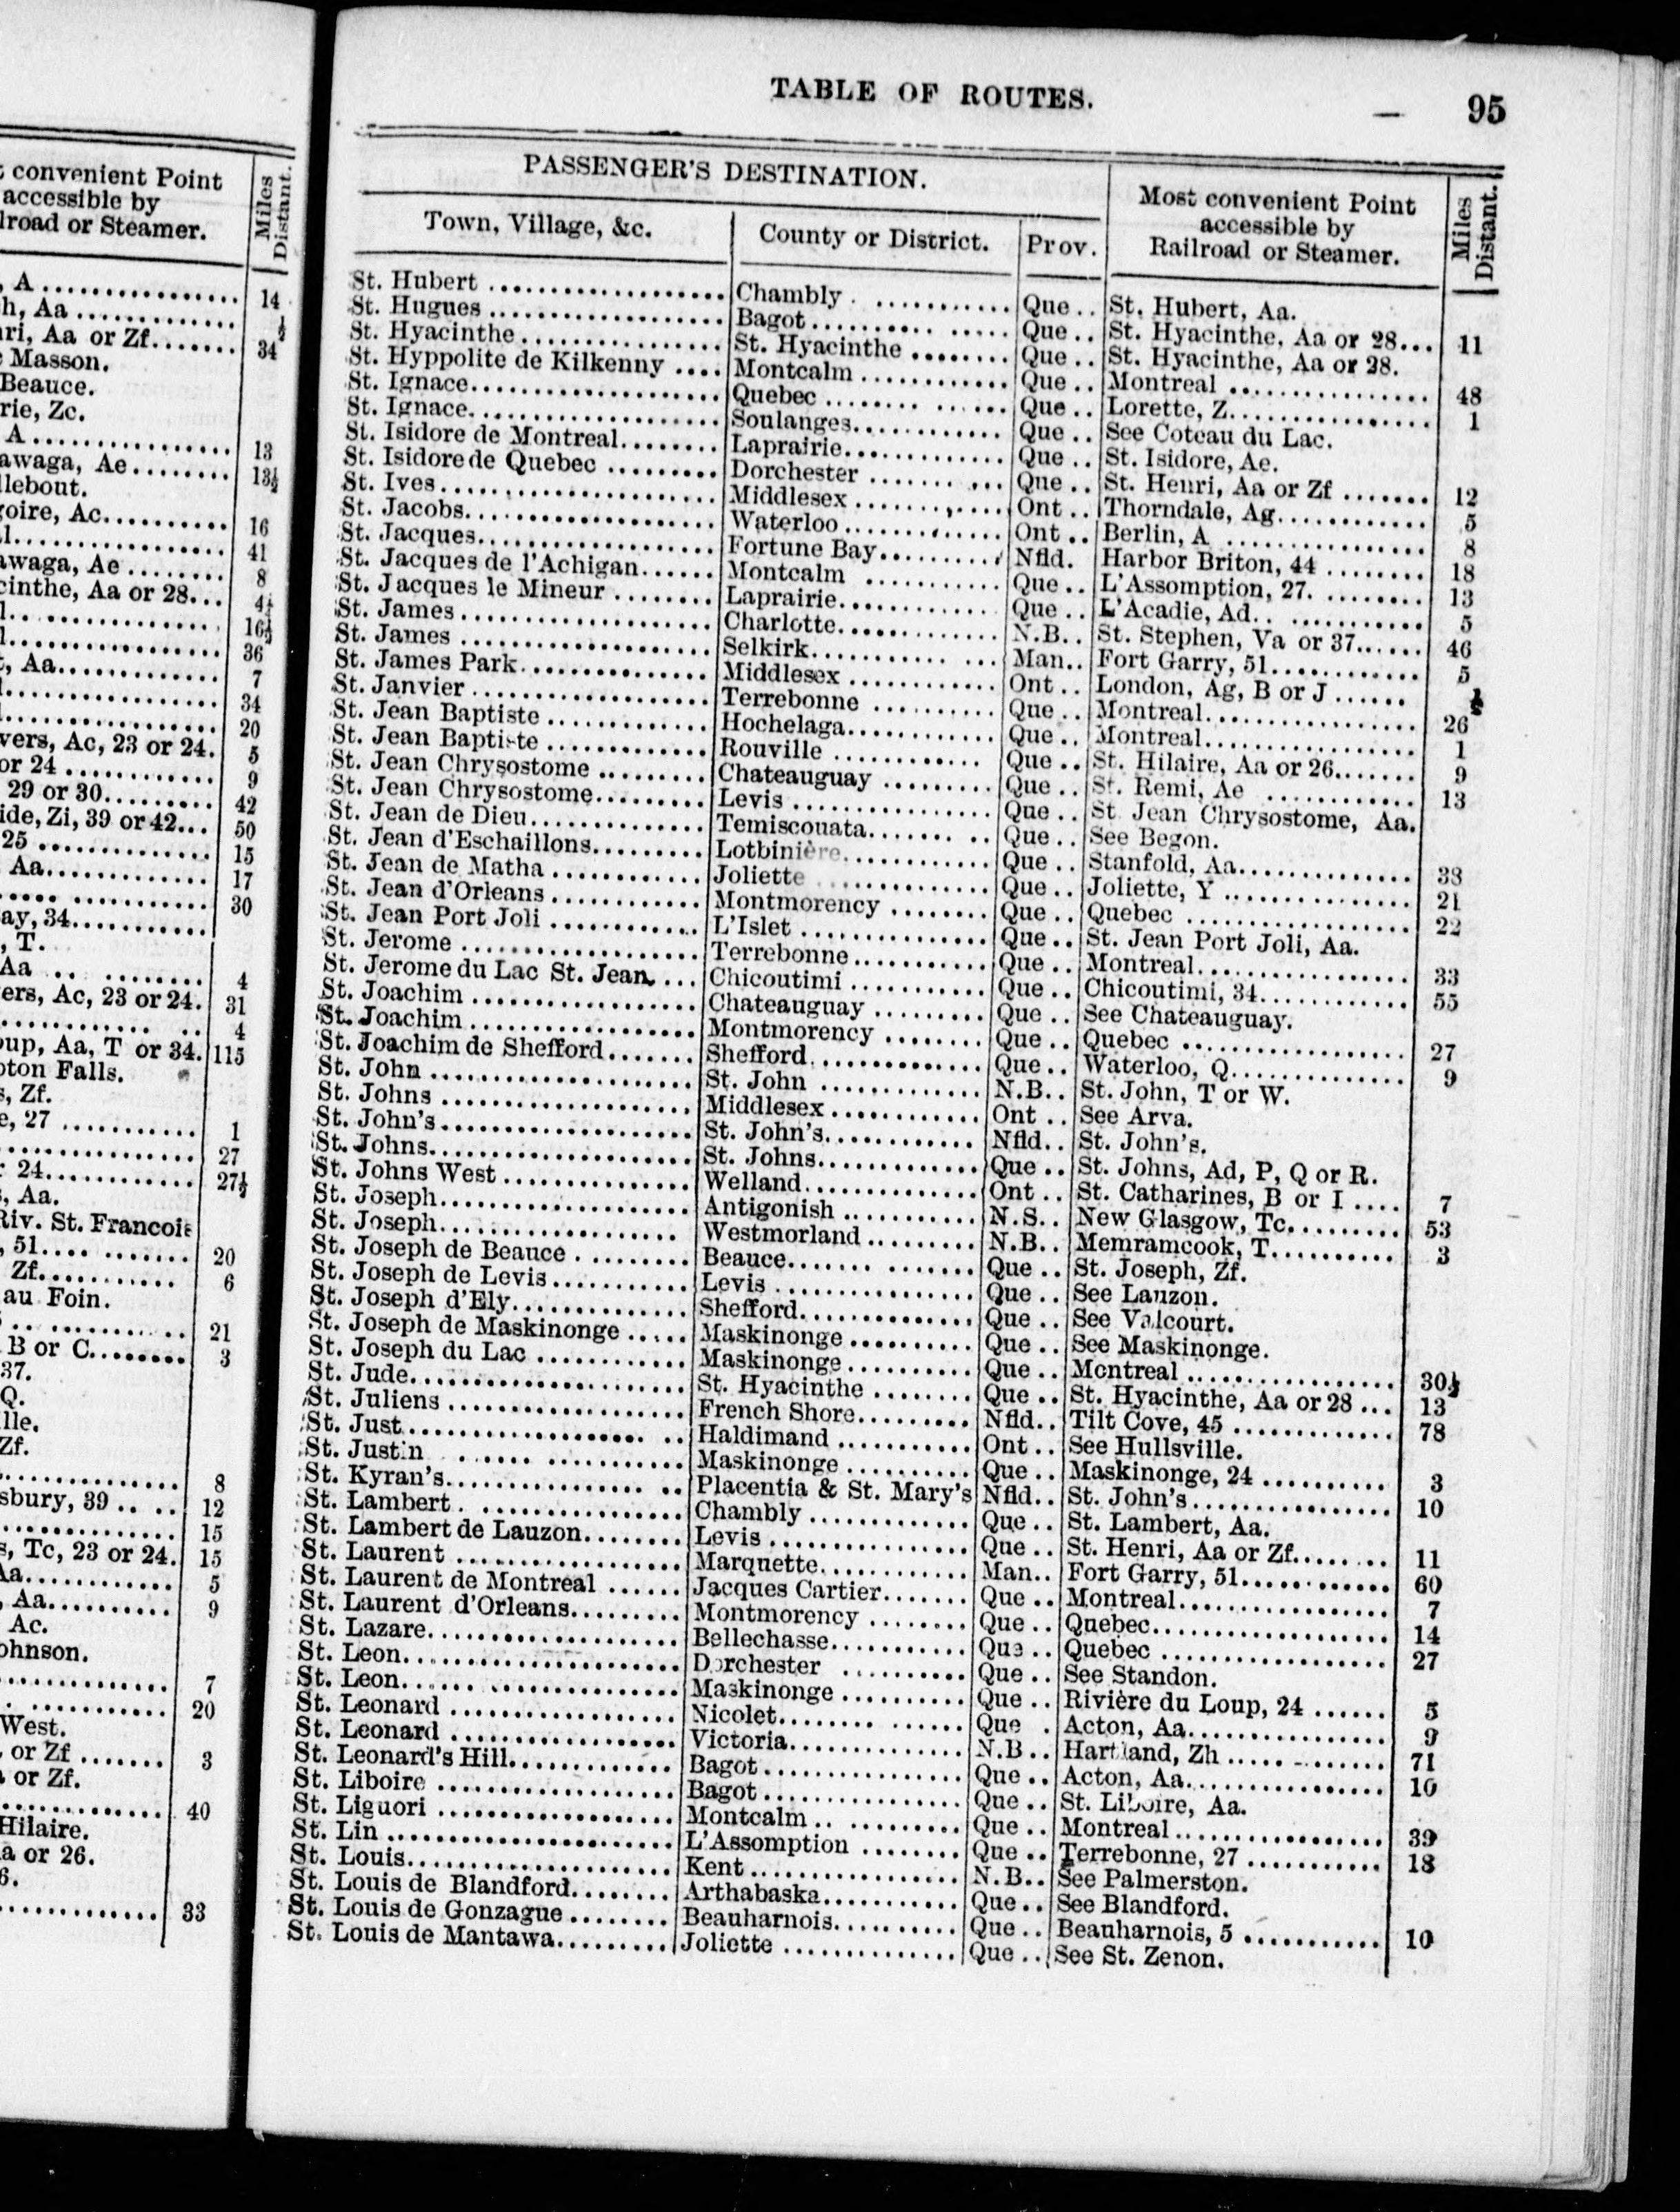 t convenient Point
accessible by
lroad or Steamer.
Miles Distant.
, A ................ 14
h, Aa .............. ½
nri, Aa or Zf....... 34
e Masson.
Beauce.
rie, Zc.
A ................ 13
awaga, Ae ........ 13½
llebout.
goire, Ac........... 16
l.................. 41
awaga, Ae ......... 8
cinthe, Aa or 28... 4½
l.................. 16½
l.................. 36
t, Aa.............. 7
l.................. 34
................... 20
vers, Ac, 23 or 24. 5
or 24 ............. 9
29 or 30.......... 42
ide, Zi, 39 or 42... 50
25 ............... 15
Aa............... 17
................... 30
ay, 34............
, T.
Aa .. ........ 4
ers, Ac, 23 or 24. 31
................ 4
oup, Aa, T or 34. 115
pton Falls.
s, Zf.
e, 27 ............ 1
................. 27
r 24............. 27½
, Aa.
Riv. St. Francois
, 51.... ........ 20
Zf............ 6
au Foin.
................ 21
B or C......... 3
37.
Q.
lle.
Zf.
................ 8
sbury, 39 .. .. 12
................ 15
s, Tc, 23 or 24. 15
Aa............. 5
, Aa........... 9
Ac.
ohnson.
................ 7
................ 20
West.
, or Zf ....... 3
a or Zf.
................ 40
Hilaire.
a or 26.
6.
................ 33
TABLE OF ROUTES. — 95
PASSENGER'S DESTINATION.
Most convenient Point
accessible by
Railroad or Steamer.
Miles Distant.
Town, Village, &c. County or District. Prov.
St. Hubert .......... Chambly ........... Que .. St. Hubert, Aa.
St. Hugues .......... Bagot ............. Que .. St. Hyacinthe, Aa or 28... 11
St. Hyacinthe........ St. Hyacinthe ........ Que .. St. Hyacinthe, Aa or 28.
St. Hyppolite de Kilkenny .... Montcalm ............ Que .. Montreal ............ 48
St. Ignace........... Quebec ............ Que .. Lorette, Z............ 1
St. Ignace........... Soulanges............ Que .. See Coteau du Lac.
St. Isidore de Montreal......... Laprairie............ Que .. St. Isidore, Ae.
St. Isidore de Quebec ......... Dorchester ........... Que .. St. Henri, Aa or Zf ....... 12
St. Ives............. Middlesex ............ Ont .. Thorndale, Ag............ 5
St. Jacobs........... Waterloo ............ Ont .. Berlin, A ............ 8
St. Jacques.......... Fortune Bay......... Nfld. Harbor Briton, 44 ......... 18
St. Jacques de l'Achigan...... Montcalm ............ Que .. L'Assomption, 27. ......... 13
St. Jacques le Mineur ........ Laprairie............ Que .. L'Acadie, Ad............ 5
St. James ........... Charlotte............ N.B.. St. Stephen, Va or 37...... 46
St. James ........... Selkirk............ Man.. Fort Garry, 51............ 5
St. James Park.............. Middlesex ............ Ont .. London, Ag, B or J ...... ½
St. Janvier ......... Terrebonne .......... Que .. Montreal............ 26
St. Jean Baptiste ............ Hochelaga............ Que .. Montreal............ 1
St. Jean Baptiste ............ Rouville ............ Que .. St. Hilaire, Aa or 26....... 9
St. Jean Chrysostome ......... Chateauguay ......... Que .. St. Remi, Ae ............ 13
St. Jean Chrysostome......... Levis ............ Que .. St Jean Chrysostome, Aa.
St. Jean de Dieu............. Temiscouata......... Que .. See Begon.
St. Jean d'Eschaillons......... Lotbinière............ Que .. Stanfold, Aa............ 38
St. Jean de Matha ............ Joliette ............ Que .. Joliette, Y ............ 21
St. Jean d'Orleans ............ Montmorency ........ Que .. Quebec ............ 22
St. Jean Port Joli ............ L'Islet ............ Que .. St. Jean Port Joli, Aa.
St. Jerome .......... Terrebonne............ Que .. Montreal............ 33
St. Jerome du Lac St. Jean.... Chicoutimi ............ Que .. Chicoutimi, 34............ 55
St. Joachim ......... Chateauguay ......... Que .. See Chateauguay.
St. Joachim ......... Montmorency ........ Que .. Quebec ............ 27
St. Joachim de Shefford....... Shefford............ Que .. Waterloo, Q............ 9
St. John ............ St. John ............ N.B.. St. John, T or W.
St. Johns ........... Middlesex ............ Ont .. See Arva.
St. John's........... St. John's............ Nfld.. St. John's.
St. Johns............ St. Johns............ Que .. St. Johns, Ad, P, Q or R.
St. Johns West............... Welland............ Ont .. St. Catharines, B or I .... 7
St. Joseph........... Antigonish ........... N.S.. New Glasgow, Tc......... 53
St. Joseph........... Westmorland ......... N.B.. Memramcook, T.......... 3
St. Joseph de Beauce ......... Beauce............ Que .. St. Joseph, Zf.
St. Joseph de Levis............ Levis ............ Que .. See Lauzon.
St. Joseph d'Ely............. Shefford............ Que .. See Valcourt.
St. Joseph de Maskinonge ..... Maskinonge .......... Que .. See Maskinonge.
St. Joseph du Lac ............ Maskinonge.......... Que .. Montreal ............ 30½
St. Jude............. St. Hyacinthe ........ Que .. St. Hyacinthe, Aa or 28 ... 13
St. Juliens ......... French Shore......... Nfld.. Tilt Cove, 45 ............ 78
St. Just............. Haldimand ........... Ont .. See Hullsville.
St. Justin .......... Maskinonge .......... Que .. Maskinonge, 24 .......... 3
St. Kyran's.......... Placentia & St. Mary's Nfld.. St. John's............ 10
St. Lambert.......... Chambly ............ Que .. St. Lambert, Aa.
St. Lambert de Lauzon........ Levis ............ Que .. St. Henri, Aa or Zf........ 11
St. Laurent ......... Marquette............ Man.. Fort Garry, 51............ 60
St. Laurent de Montreal ...... Jacques Cartier....... Que .. Montreal............ 7
St. Laurent d'Orleans......... Montmorency ........ Que .. Quebec............ 14
St. Lazare........... Bellechasse............ Que .. Quebec ............ 27
St. Leon............. Dorchester .......... Que .. See Standon.
St. Leon............. Maskinonge .......... Que .. Rivière du Loup, 24 ...... 5
St. Leonard ......... Nicolet............ Que . Acton, Aa............ 9
St. Leonard ......... Victoria............ N.B .. Hartland, Zh ............ 71
St. Leonard's Hill............ Bagot ............ Que .. Acton, Aa............ 10
St. Liboire ......... Bagot ............ Que .. St. Liboire, Aa.
St. Liguori ......... Montcalm ............ Que .. Montreal ............ 39
St. Lin ............. L'Assomption ........ Que .. Terrebonne, 27 ........... 18
St. Louis............ Kent ............ N.B.. See Palmerston.
St. Louis de Blandford........ Arthabaska............ Que .. See Blandford.
St. Louis de Gonzague ........ Beauharnois.......... Que .. Beauharnois, 5 ........... 10
St. Louis de Mantawa.......... Joliette ............ Que .. See St. Zenon.